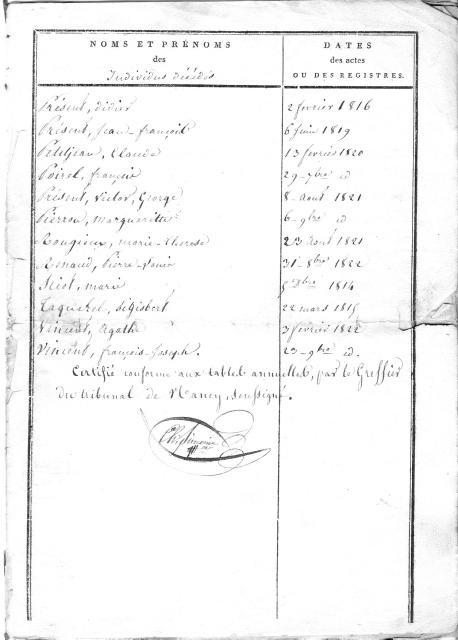 NOMS ET PRÉNOMS
des
Individus décédés
DATES
des actes
OU DES REGISTRES.
Présent, didier 2 fevrier 1816
Présent, jean-françois 6 juin 1819
Petitjean, Claude 13 fevrier 1820
Poirel, françois 29 - 7bre id
Présent, Victor, George 8 - aout 1821
Pierron, Margueritte 6 - 9bre id
Rougieux, marie-therese 23 aout 1821
Renaud, Pierre-louis 31 - 8bre 1822
marie 1814
Taquerel, sigisbert 22 mars 1815
Vincent, Agathe 3 fevrier 1822
Vincent, françois-joseph. 23 - 9bre id.
Certifié conforme aux tables annuelles, par le Greffier
du tribunal de Nancy, soussigné.